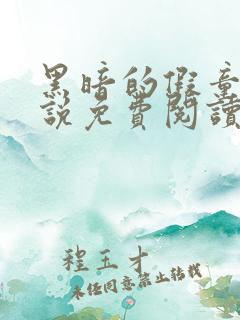 黑暗的假童
說免費閱讀
程玉才
未经同意禁止转载